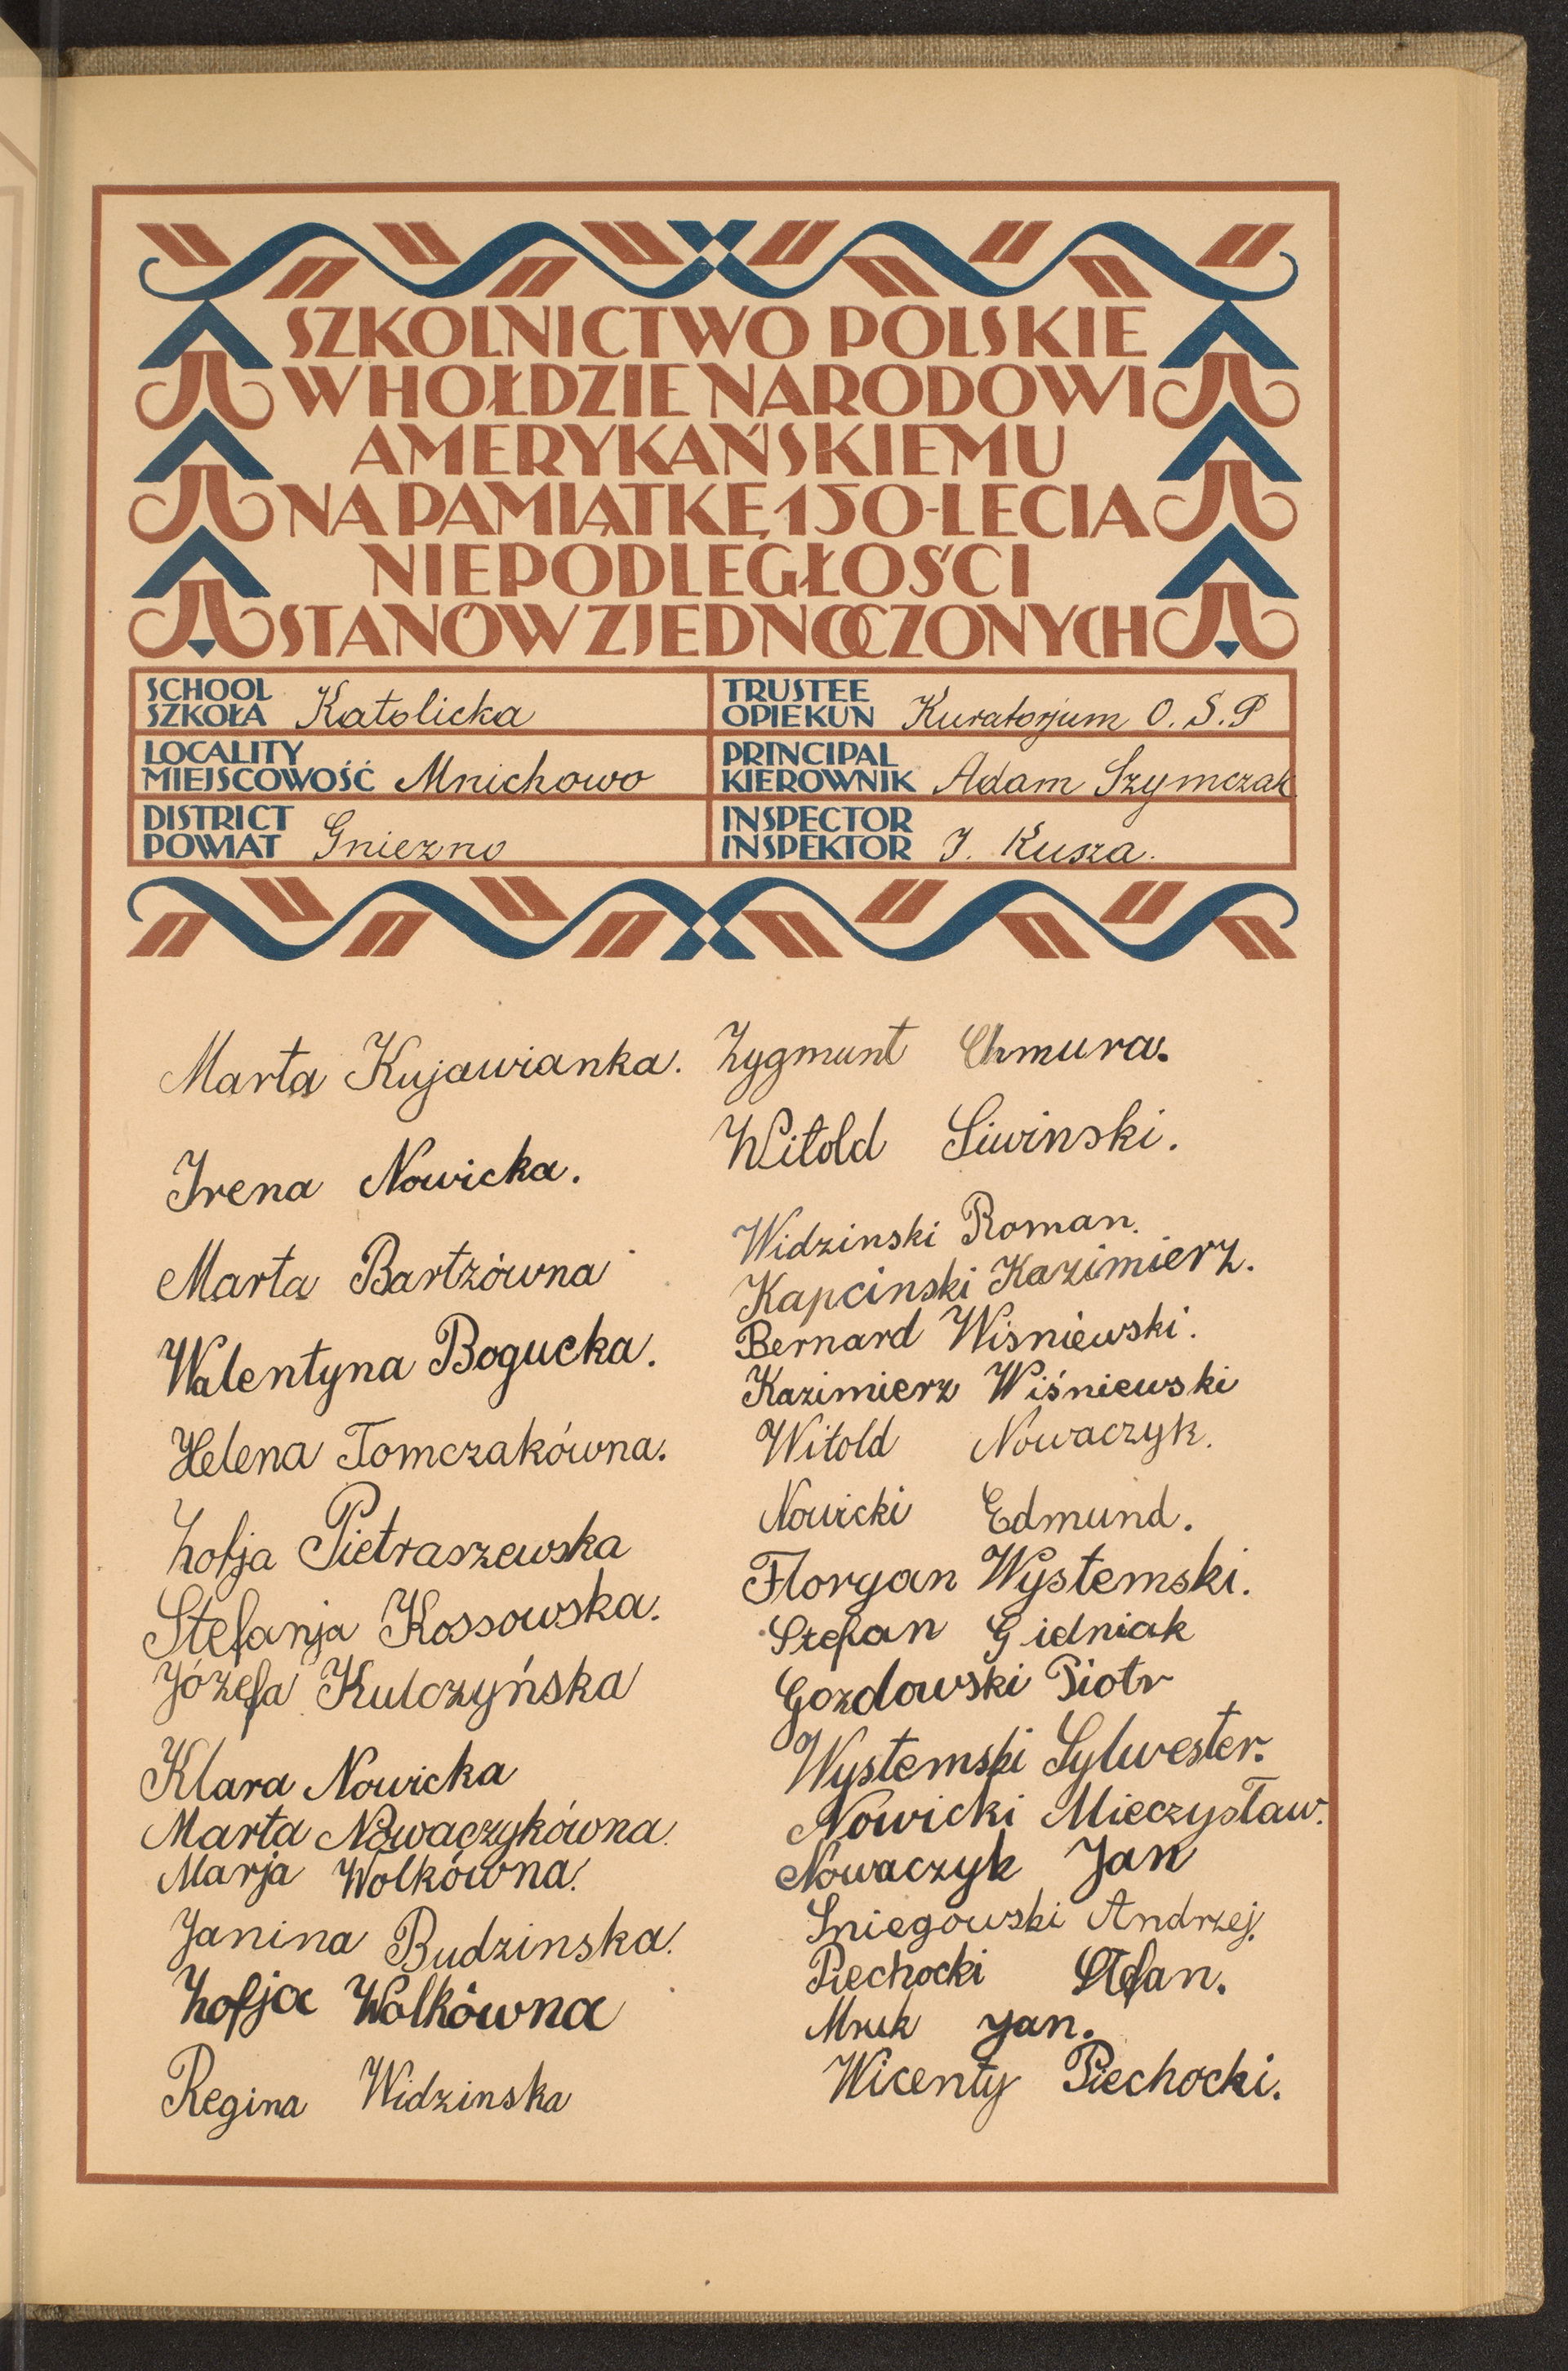 SZKOLNICTWO POLSKIE
W HOŁDZIE NARODOWI
AMERYKAŃSKIEMU
NA PAMIĄTKĘ 150-LECIA
NIEPODLEGŁOŚCI
STANÓW ZJEDNOCZONYCH
SCHOOL
SZKOŁA Katolicka
TRUSTEE
OPIEKUN Kuratorjum O. S. P
LOCALITY
MIEJSCOWOŚĆ Mnichowo
PRINCIPAL
KIEROWNIK Adam Szymczak
DISTRICT
POWIAT Gniezno
INSPECTOR
INSPEKTOR J. Kusza.
Marta Kujawianka.
Irena Nowicka.
Marta Bartzówna
Walentyna Bogucka.
Helena Tomczakówna.
Zofja Pietraszewska
Stefanja Kossowska.
Józefa Kulczyńska
Klara Nowicka
Marta Nowaczykówna.
Marja Wolkówna.
Janina Budzinska.
Zofja Wolkówna
Regina Widzinska
Zygmunt Chmura.
Witold Siwinski.
Widzinski Roman.
Kapcinski Kazimierz.
Bernard Wisniewski.
Kazimierz Wiśniewski
Witold Nowaczyk.
Nowicki Edmund.
Floryan Wystemski.
Stefan Gidniak
Gozdowski Piotr
Wystemski Sylwester.
Nowicki Mieczysław.
Nowaczyk Jan
Sniegowski Andrzej.
Piechocki Stefan.
Mruk Jan.
Wicenty Piechocki.